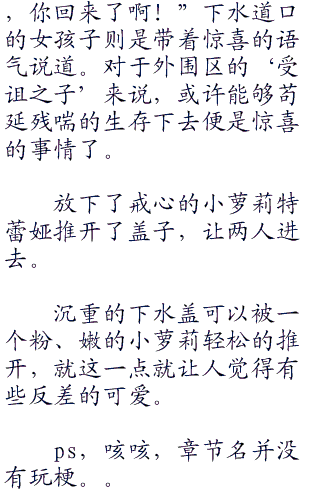 ，你回来了啊！”下水道口
的女孩子则是带着惊喜的语
气说道。对于外围区的‘受
诅之子’来说，或许能够苟
延残喘的生存下去便是惊喜
的事情了。
放下了戒心的小萝莉特
蕾娅推开了盖子，让两人进
去。
沉重的下水盖可以被一
个粉、嫩的小萝莉轻松的推
开，就这一点就让人觉得有
些反差的可爱。
ps，咳咳，章节名并没
有玩梗。。